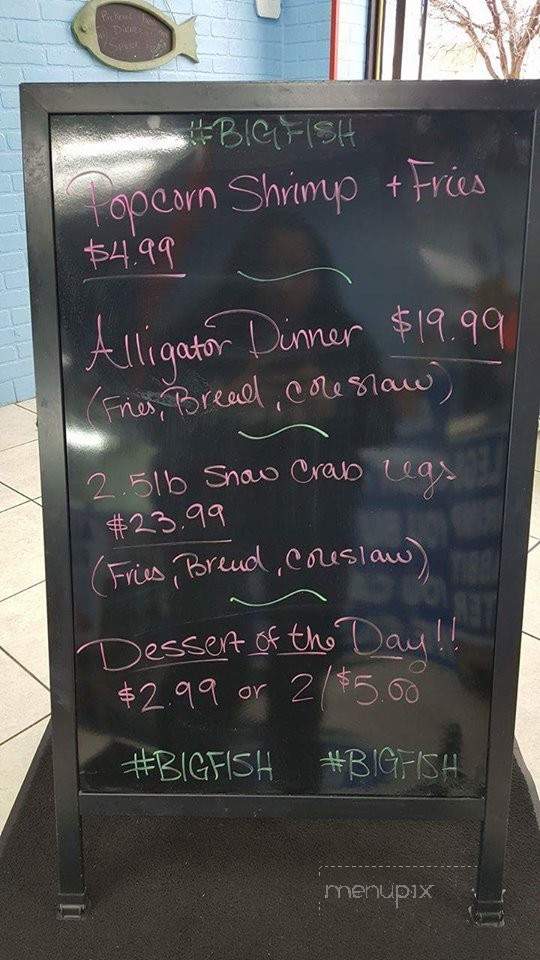 #BIGFISH
Popcorn Shrimp + Fries
$4.99
Alligator Dinner $19.99
(Fries, Bread, coleslaw)
2.5lb Snow Crab Legs
$23.99
(Fries, Bread, coleslaw)
Dessert of the Day!!
$2.99 or 2/$5.00
#BIGFISH #BIGFISH
menupix